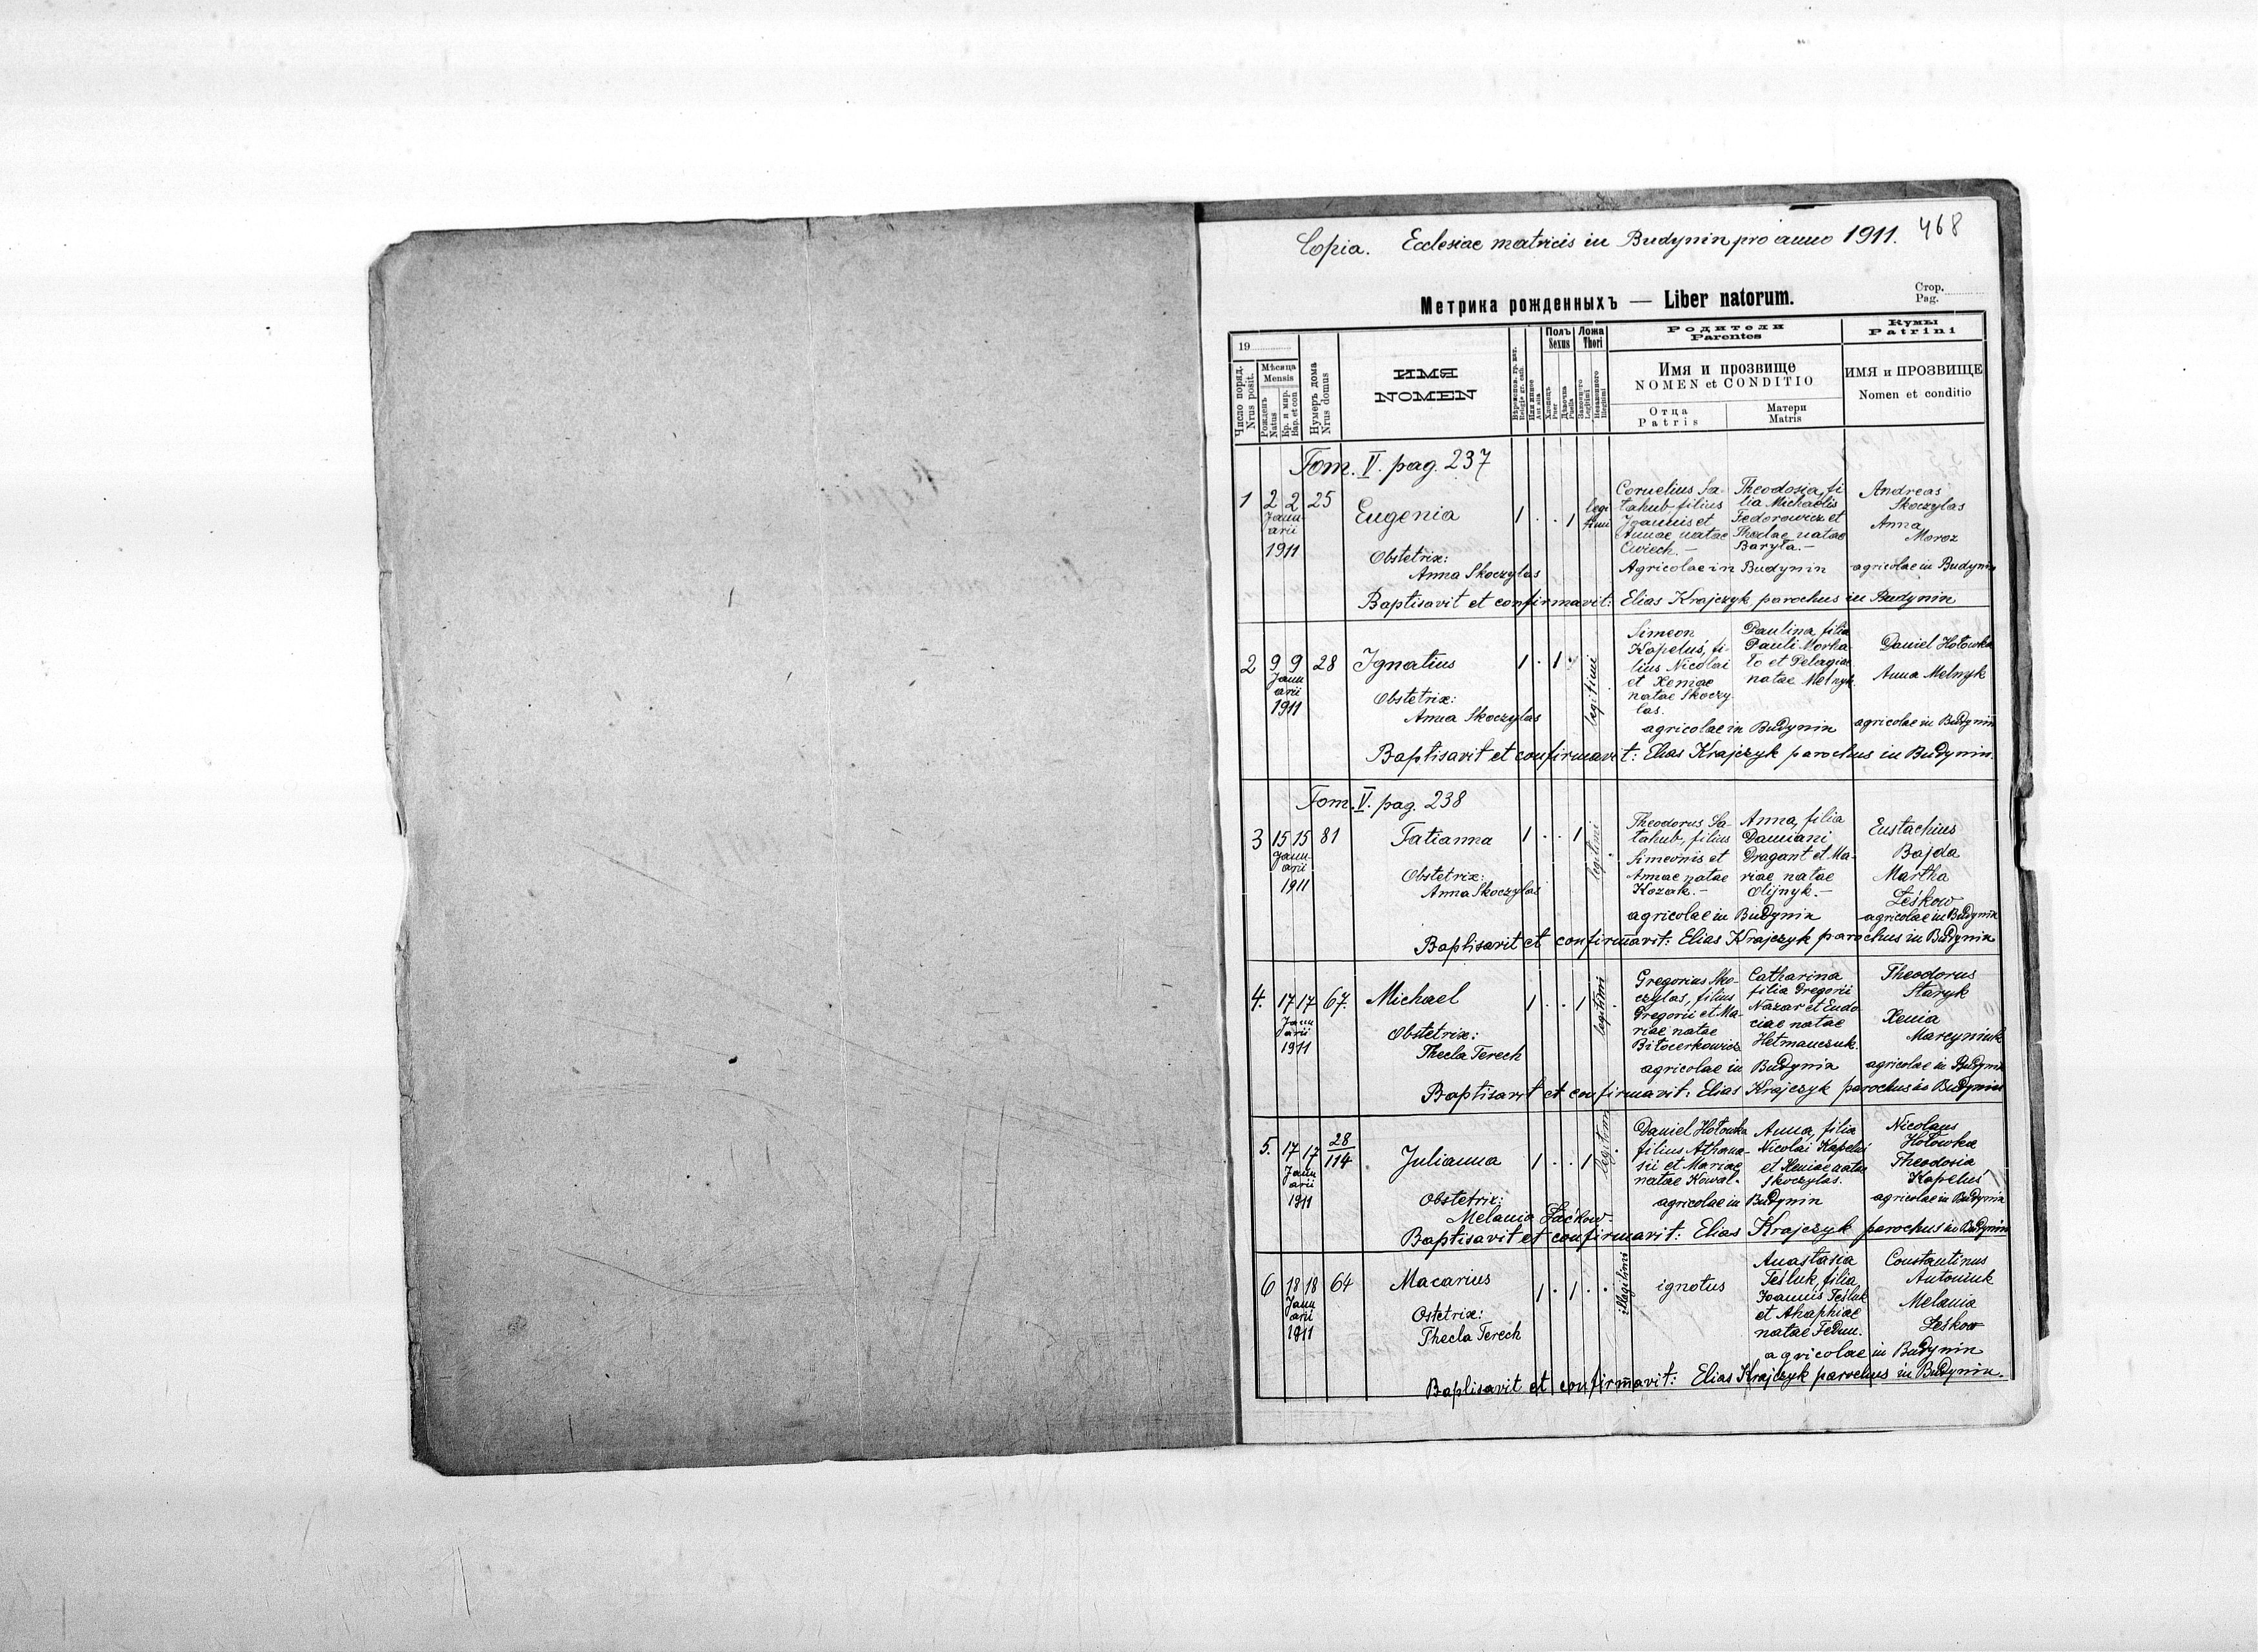 Copia. Ecclesiae matricis in Budynin pro anno 1911. 468
Метрика рожденныхъ — Liber natorum.
Стор.
Pag.
19
Число поряд.
Nrus posit.
Мѣсяца
Mensis
Рожденъ
Natus
Кр. и мир.
Bap. et con
Нумеръ дома
Nrus domus
ИМЯ
NOMEN
Полъ
Sexus
Хлопець
Puer
Дѣвочка
Puella
Ложа
Thori
Законного
Legitimi
Незаконного
Illegitimi
Родители
Parentes
Имя и прозвище
NOMEN et CONDITIO
Отца
Patris
Матери
Matris
Кумы
Patrini
ИМЯ и ПРОЗВИЩЕ
Nomen et conditio
Tom. V. pag. 237
1 2 2 25
Janu-
arii
1911
Eugenia
1 . . 1
legi
timi
Cornelius Sa-
tahub filius
Joannis et
Annae natae
Cwiech. —
Theodosia, fi
lia Michaelis
Fedorowicz et
Theclae natae
Baryła. —
Andreas
Skoczylas
Anna
Moroz
Obstetrix:
Anna Skoczylas
Agricolae in Budynin
agricolae in Budynin
Baptisavit et confirmavit: Elias Krajczyk parochus in Budynin
2 9 9 28
Janu
arii
1911
Ignatius
1 . 1
legitimi
Simeon
Kapeluś, fi-
lius Nicolai
et Xeniae
natae Skoczy
las.
Paulina filia
Pauli Morka-
ło et Pelagiae
natae Melnyk.
Daniel Hołowka
Anna Melnyk
Obstetrix:
Anna Skoczylas
agricolae in Budynin
agricolae in Budynin
Baptisavit et confirmavit: Elias Krajczyk parochus in Budynin.
Tom. V. pag. 238
3 15 15 81
Janu
arii
1911
Tatianna
1 . . 1
legitimi
Theodorus Sa-
tahub, filius
Simeonis et
Annae natae
Kozak. —
Anna, filia
Damiani
Dragant et Ma-
riae natae
Olijnyk. —
Eustachius
Bajda
Martha
Leśkow
Obstetrix:
Anna Skoczylas
agricolae in Budynin
agricolae in Budynin
Baptisavit et confirmavit: Elias Krajczyk parochus in Budynin
4. 17 17 67.
Janu
arii
1911
Michael
1 . . 1 .
legitimi
Gregorius Sko-
czylas, filius
Gregorii et Ma-
riae natae
Biłocerkowicz
Catharina
filia Gregorii
Nazar et Eudo
ciae natae
Hetmanczuk.
Theodorus
Staryk
Xenia
Marcyniuk
Obstetrix:
Thecla Terech
agricolae in Budynin
agricolae in Budynin
Baptisavit et confirmavit: Elias Krajczyk parochus in Budynin
5. 17 17 28
114
Janu
arii
1911
Julianna
1 . . 1
legitimi
Daniel Hołowka
filius Athana-
sii et Mariae
natae Kowal-
Anna, filia
Nicolai Kapeluś
et Xeniae natae
Skoczylas.
Nicolaus
Hołowka
Theodosia
Kapeluś
Obstetrix:
Melania
agricolae in Budynin
agricolae in Budynin
Baptisavit et confirmavit: Elias Krajczyk parochus in Budynin
6 18 18 64
Janu
arii
1911
Macarius
1 . 1 . .
illegitimi
ignotus
Anastasia
Tesluk, filia
Joannis Tesluk
et Ahaphiae
natae Fedun.
Constantinus
Antoniuk
Melania
Leśkow
Ostetrix:
Thecla Terech
agricolae in Budynin
Baptisavit et confirmavit: Elias Krajczyk parochus in Budynin.